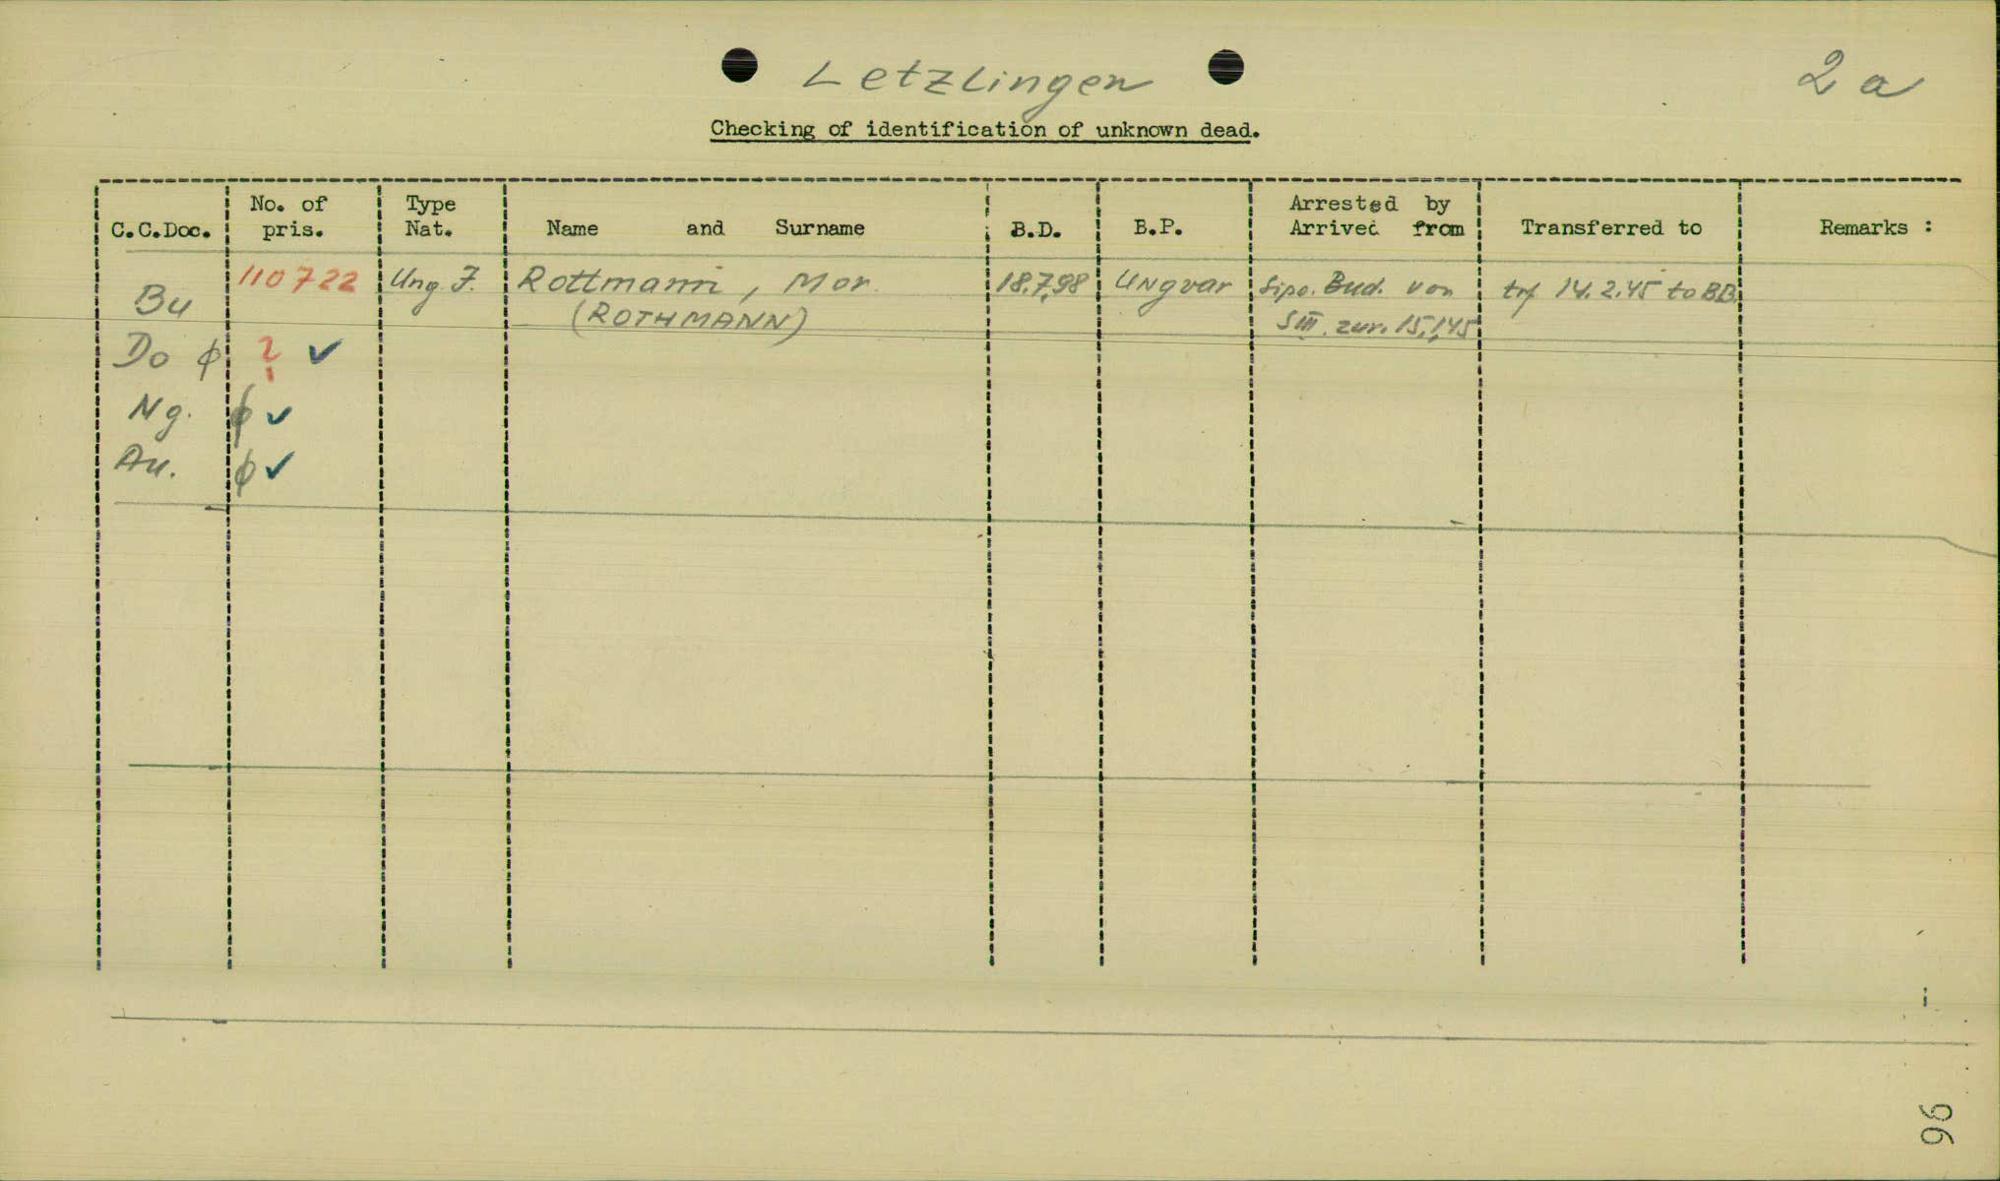 Letzlingen
2 a
Checking of identification of unknown dead.
C.C.Doc. No. of pris. Type Nat. Name and Surname B.D. B.P. Arrested by Arrived from Transferred to Remarks :
Bu 110722 Ung. J. Rottmann, Mor. 18.7.98 Ungvar Sipo. Bud. von trf 14.2.45 to BB.
(ROTHMANN) SIII. zur. 15.1.45
Do ϕ ? ✓
Ng. ϕ ✓
Au. ϕ ✓
96